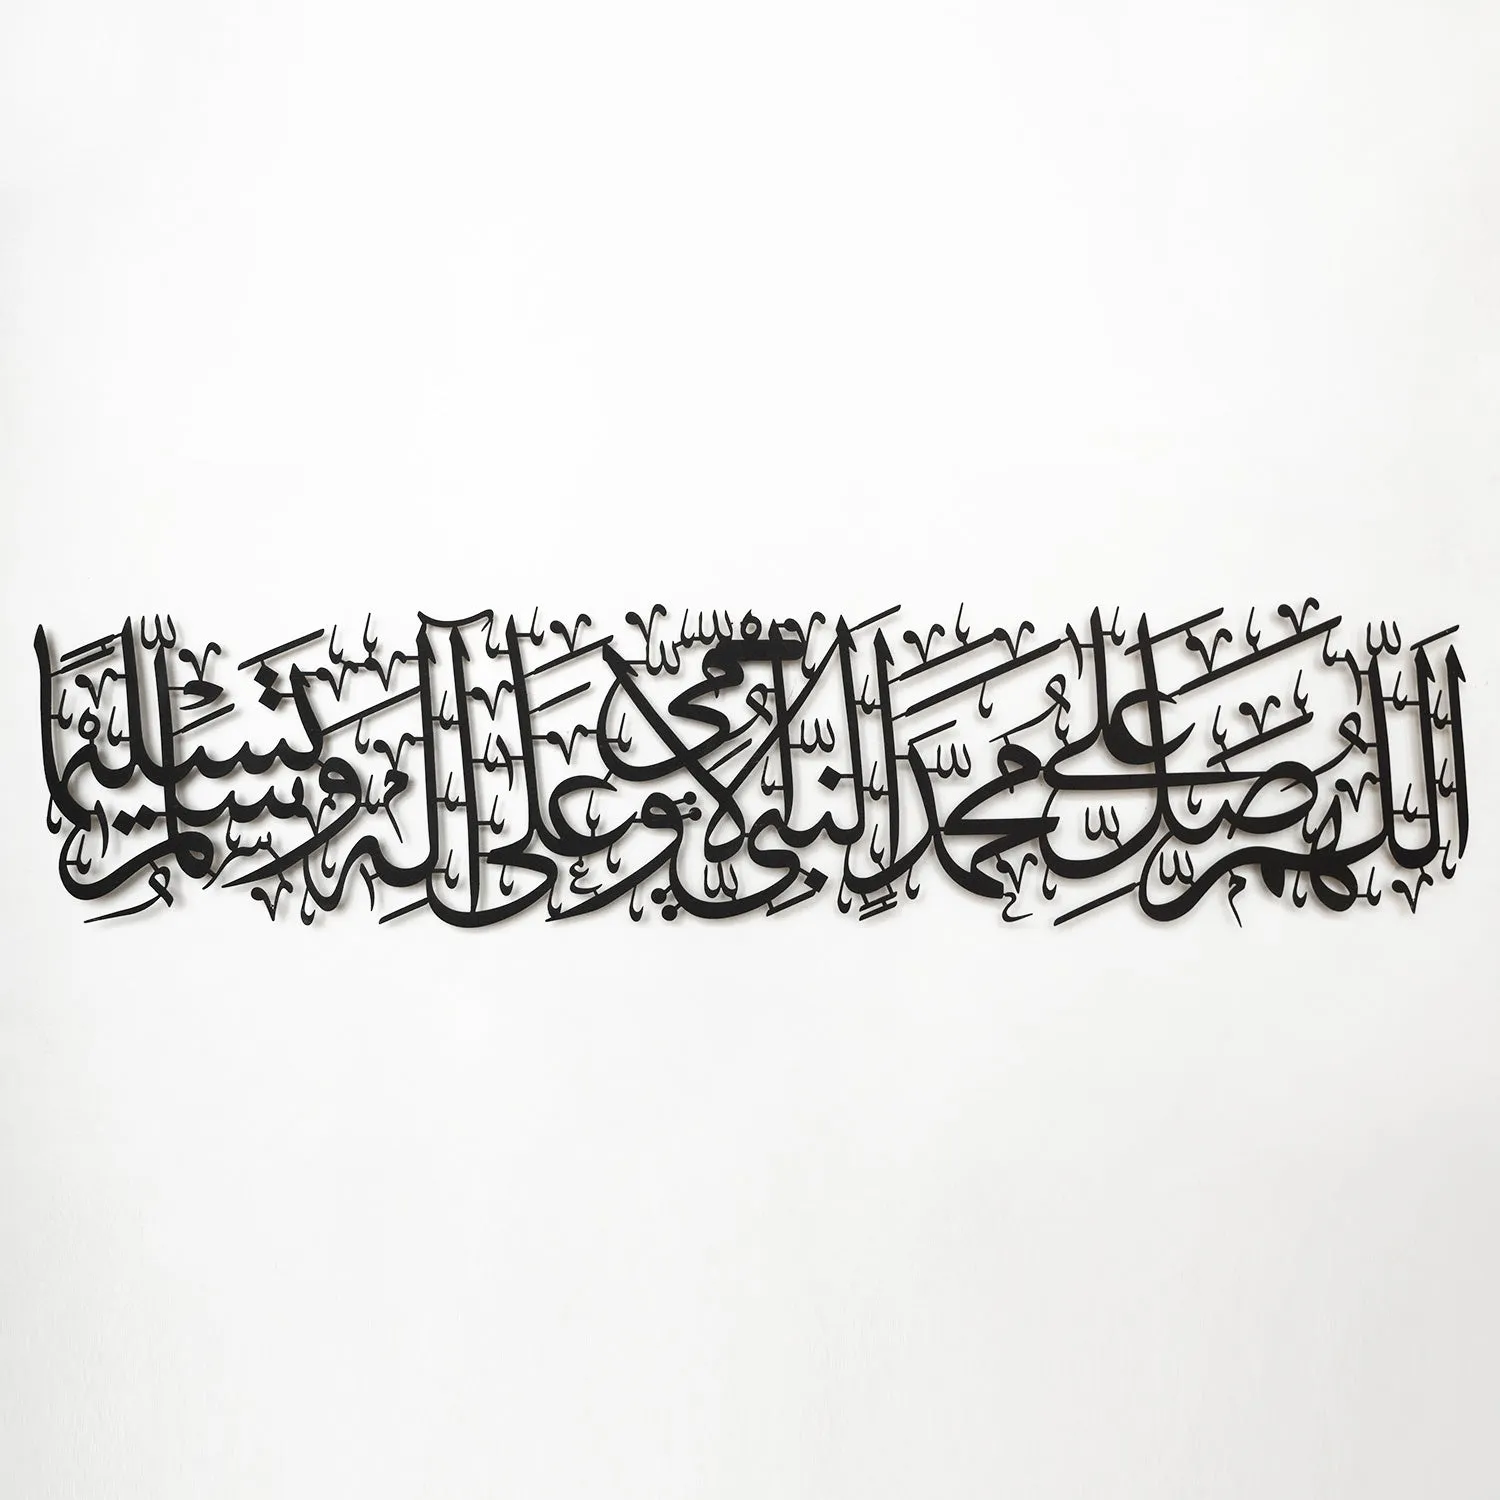 اللهم صل على محمد النبي الأمي وعلى آله وسلم تسليما